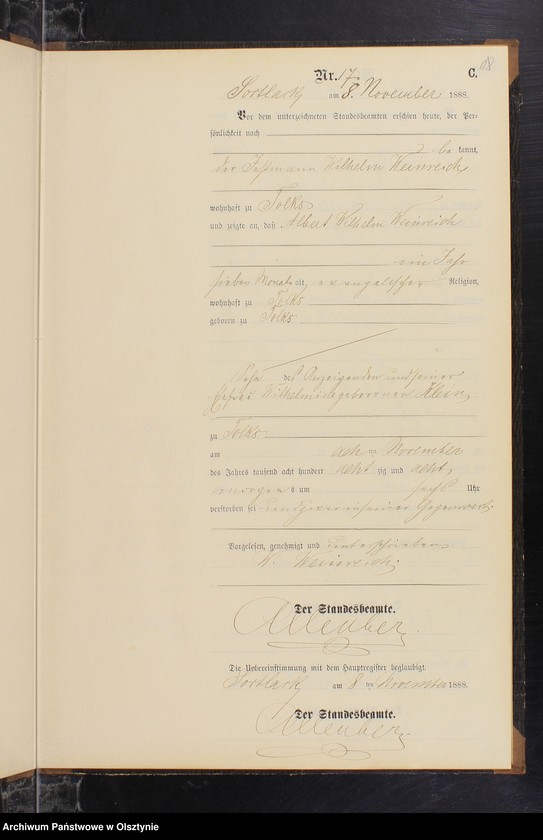 18
Nr. 17. C.
Sortlack am 8. November 1888.
Vor dem unterzeichneten Standesbeamten erschien heute, der Per-
sönlichkeit nach
be kannt,
der Wilhelm Weinreich
wohnhaft zu Tolks
und zeigte an, daß Albert Wilhelm Weinreich
ein Jahr
sieben Monate alt, evangelischer Religion,
wohnhaft zu Tolks
geboren zu Tolks
Sohn des Anzeigenden und seiner
Ehefrau Wilhelmine geborenen Klein
zu Tolks
am acht ten November
des Jahres tausend acht hundert acht zig und acht,
morgen s um sechs Uhr
verstorben sei und zwar in seiner Gegenwart.
Vorgelesen, genehmigt und unterschrieben
W. Weinreich.
Der Standesbeamte.
Die Uebereinstimmung mit dem Hauptregister beglaubigt.
Sortlack am 8 ten November 1888.
Der Standesbeamte.
Archiwum Państwowe w Olsztynie